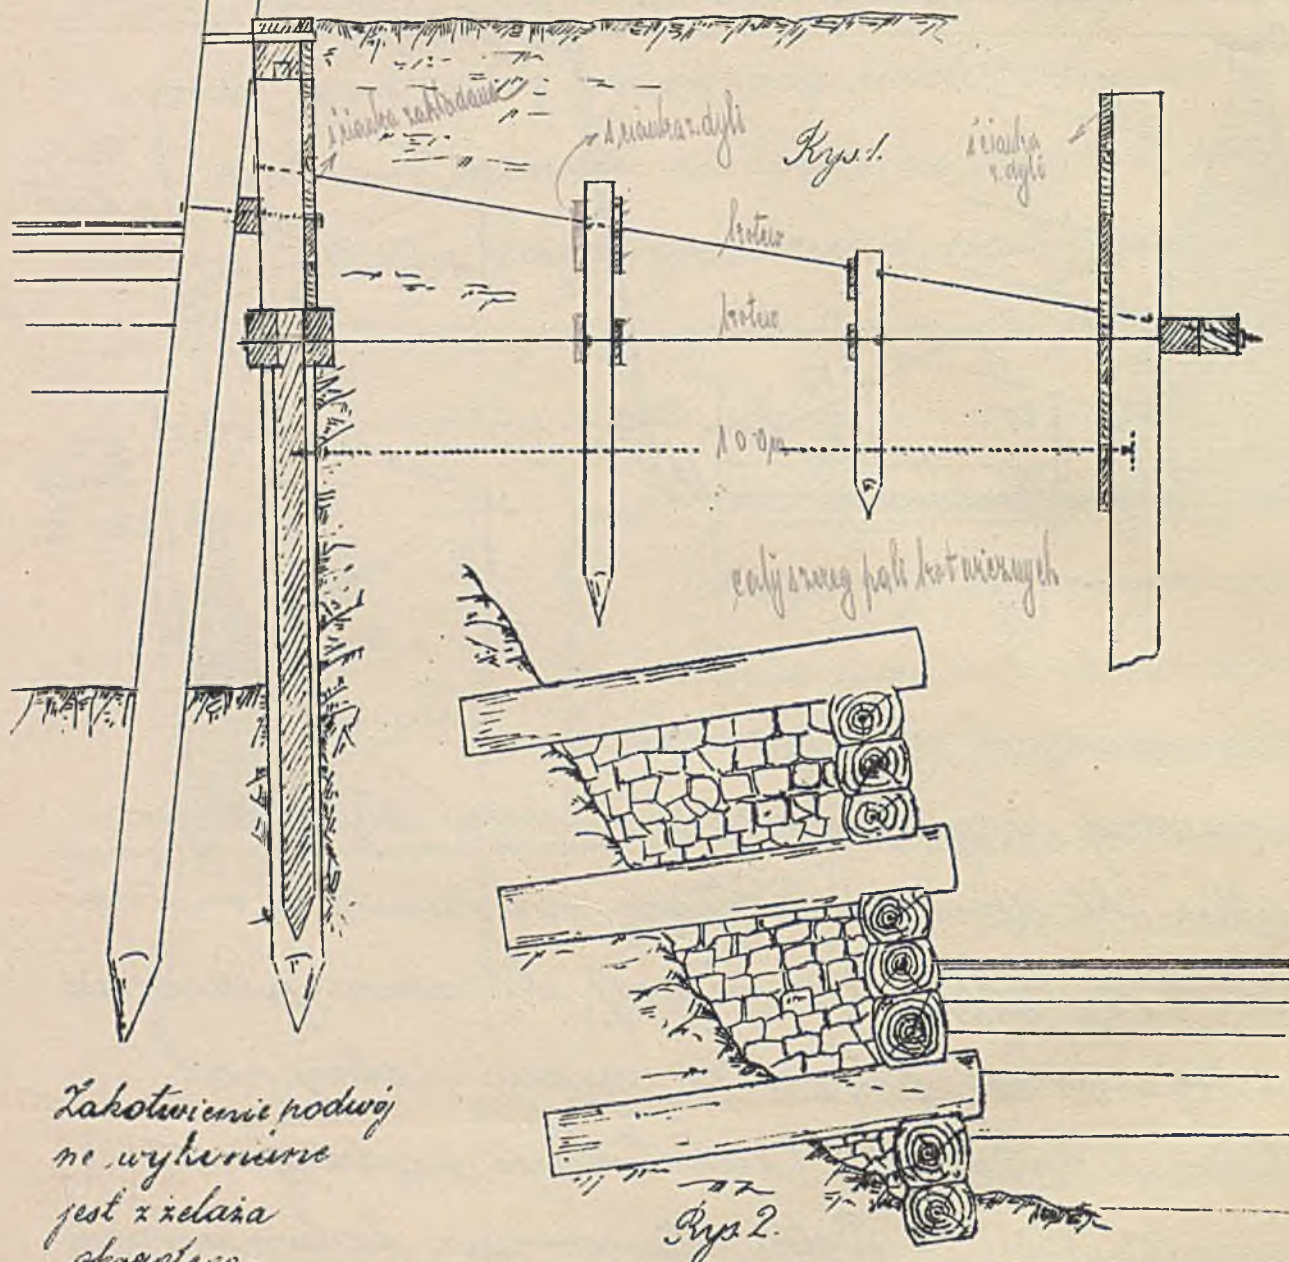 ścianka zakładana
ścianka z dyli
Rys.1.
ścianka
z dyli
kotew
kotew
10 m
cały szereg pali kotwicznych
Zakotwienie podwój
ne wykonane
jest z żelaza
okrągłego
Rys 2.